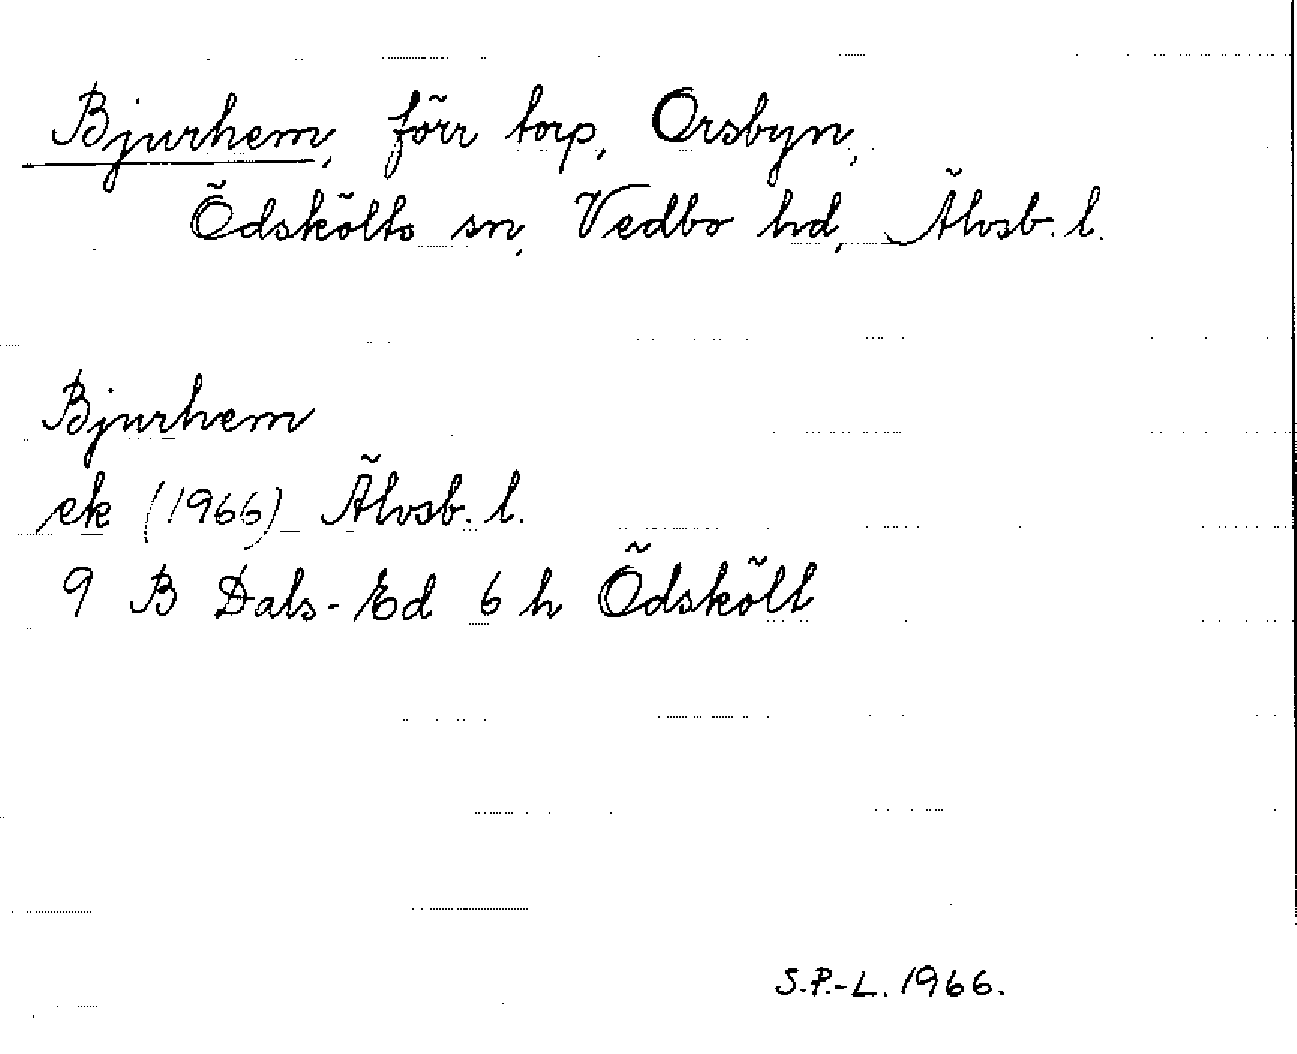 Bjurhem, förr torp, Orsbyn,
Ödskölts sn, Vedbo hd, Älvsb. l.
Bjurhem
ek (1966) Älvsb. l.
9 B Dals-Ed 6 h Ödskölt
S.P.-L. 1966.